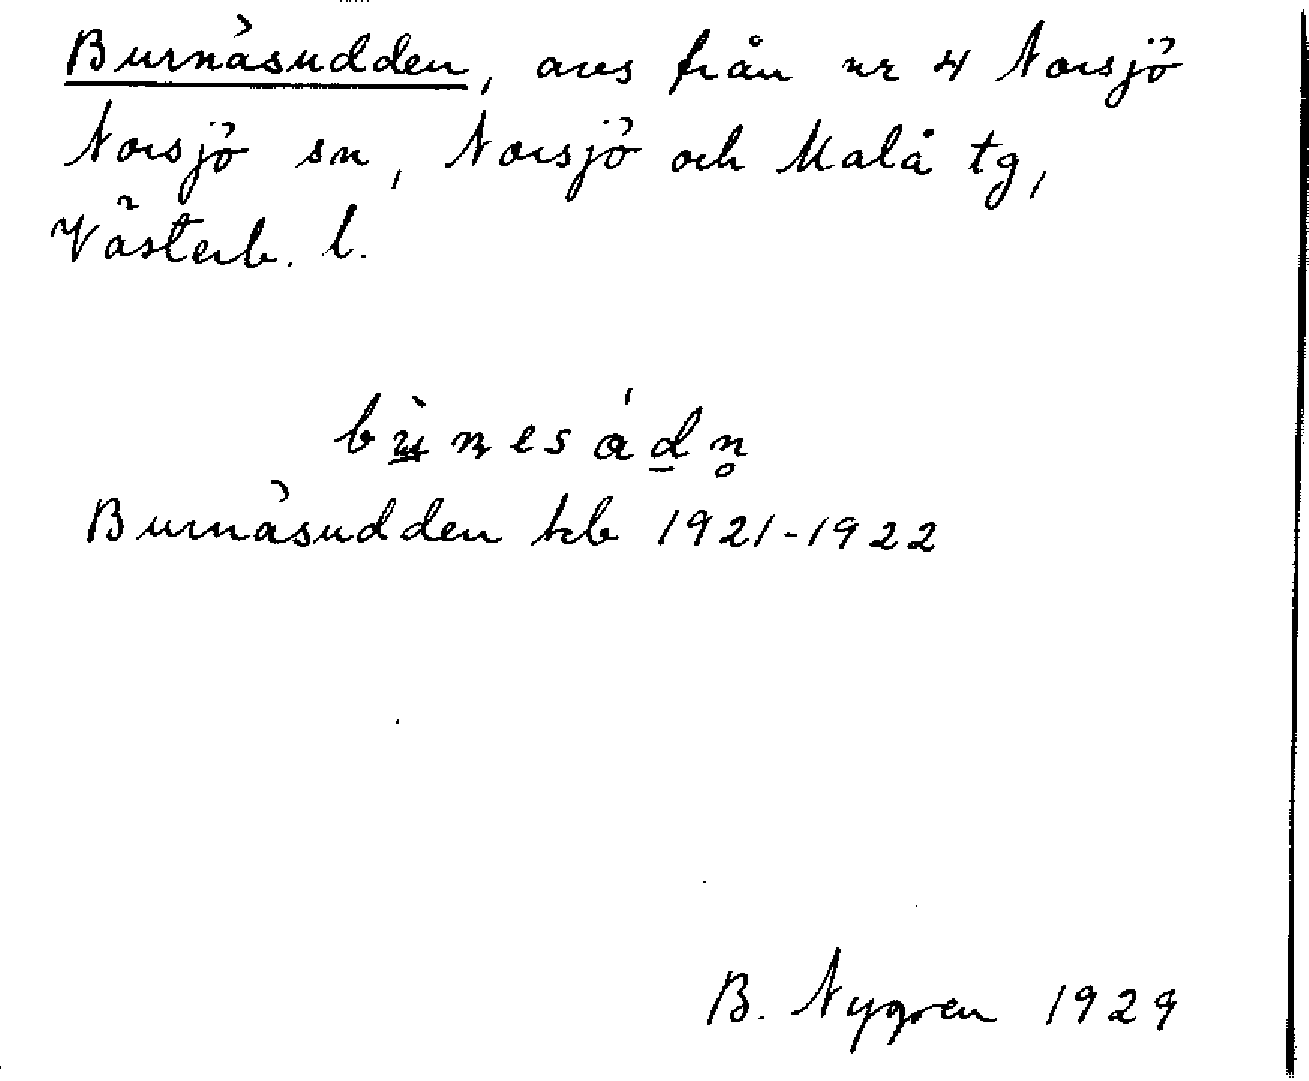 Burnäsudden, avs från nr 4 Norsjö
Norsjö sn, Norsjö och Malå tg,
Västerb. l.
Burnäsudden kb 1921-1922
B. Nygren 1929